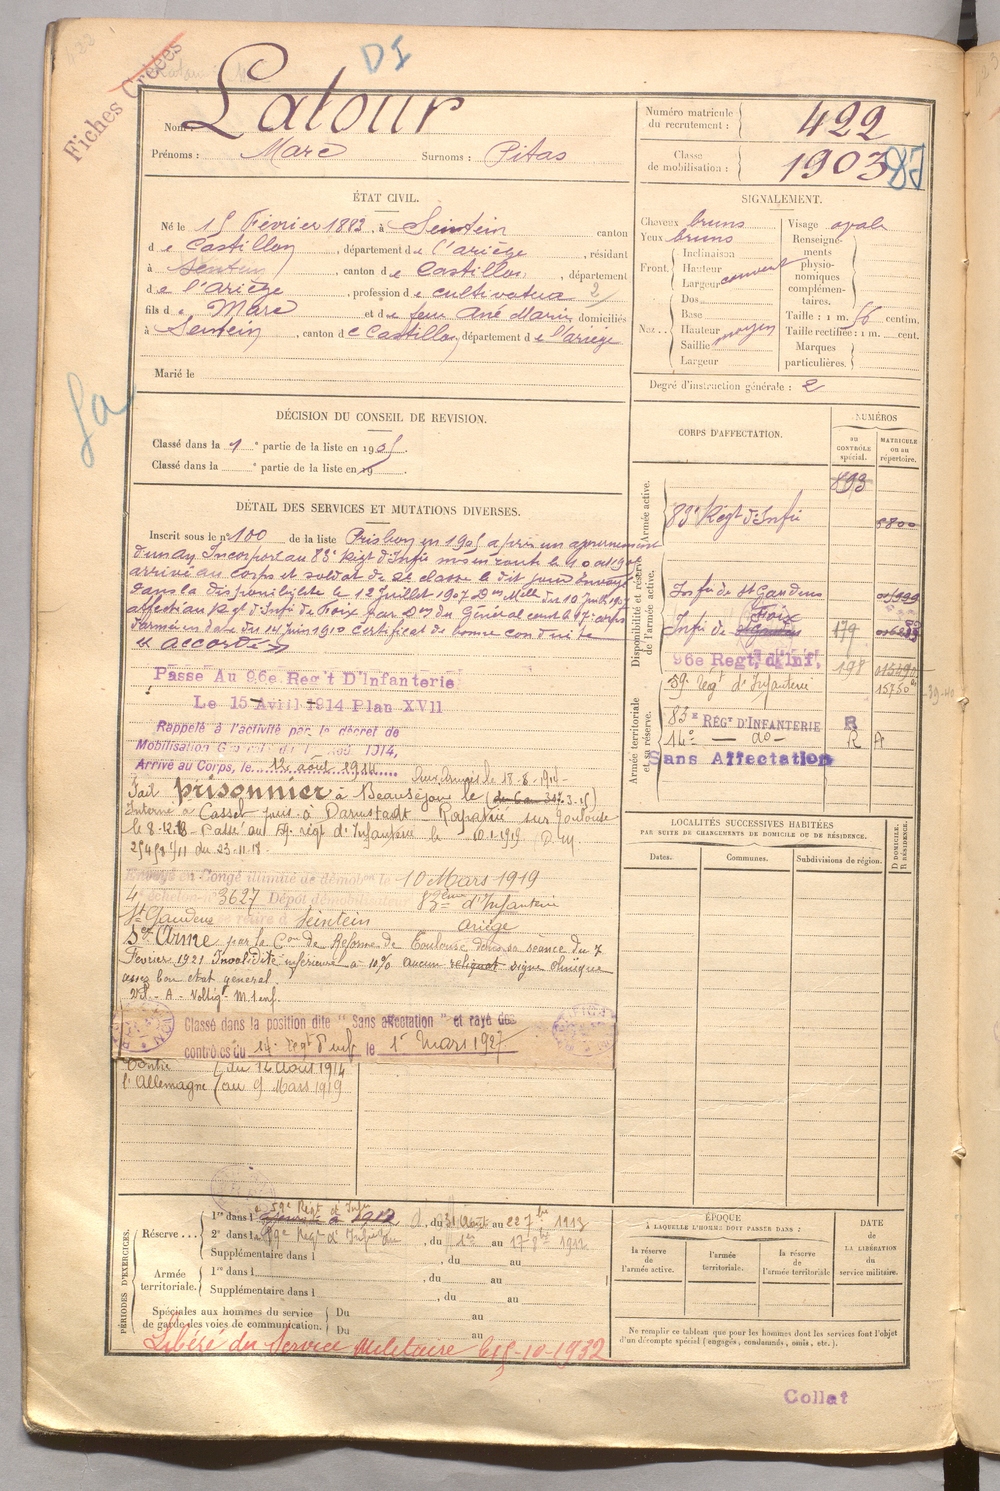 Fiches Créées
DI
Nom : Latour
Prénoms : Marc Surnoms : Pitas
Numéro matricule du recrutement : 422
Classe de mobilisation : 1903
ÉTAT CIVIL.
Né le 15 Février 1883, à Sentein canton
de Castillon, département de l'ariège, résidant
à Sentein, canton de Castillon, département
de l'ariège, profession de cultivateur 2
fils de Marc et de feue Ané Marie, domiciliés
à Sentein, canton de Castillon, département de l'ariège
Marié le
SIGNALEMENT.
Cheveux bruns
Yeux bruns
Front. Inclinaison
Hauteur
Largeur couvert
Nez. Dos
Base
Hauteur moyen
Saillie
Largeur
Visage ovale
Renseignements physionomiques complémentaires.
Taille : 1 m. 56 centim.
Taille rectifiée : 1 m. cent.
Marques particulières.
Degré d'instruction générale : 2
DÉCISION DU CONSEIL DE REVISION.
Classé dans la 1e partie de la liste en 1905.
Classé dans la e partie de la liste en 19
DÉTAIL DES SERVICES ET MUTATIONS DIVERSES.
Inscrit sous le n° 100 de la liste en 1905 après un ajournement
d'un an Incorporé au 83e Régt d'Infie mis en route le
arrivé au corps et soldat de 2e classe le dit jour Envoyé
dans la disponibilité le 12 Juillet 1907 Don Mlle du 10 Juillet 1907
affecté au Régt d'Infie de Foix par Don du Général comt le 17e corps
d'armée en date du 14 Juin 1910 Certificat de bonne conduite
"accordé"
Passe Au 96e Reg't D'Infanterie
Le 15 Avril 1914 Plan XVII
Rappelé à l'activité par le décret de
Mobilisation Générale du 1 Août 1914,
Arrivé au Corps, le 12 août 1914
Aux Armées le 18-8-1914
Fait prisonnier à Beauséjour le
Interné à Cassel puis à Darmstadt - Rapatrié sur Toulouse
le 8-12-18 - Passé au 59e régt d'Infanterie le 10-1-1919 D M
du 23-11-18
Renvoyé en Congé illimité de démobon le 10 Mars 1919
4e échelon n° 3627 Dépôt démobilisateur 83ème d'Infanterie
St Gaudens se retire à Seintein ariège
Sce Armé par la Con de Réforme de Toulouse dans sa séance du 7
Février 1921 Invalidité inférieure à 10% aucun reliquat signe clinique
assez bon état général
Classé dans la position dite "Sans affectation" et rayé des
contrôles du 14e régt d'inf le 1er mars 1927
Contre l'Allemagne
du 12 Août 1914
au 9 Mars 1919
CORPS D'AFFECTATION.
NUMÉROS
au CONTRÔLE spécial.
MATRICULE ou au répertoire.
Armée active.
893
83e Régt d'Infie 5800
Disponibilité et réserve de l'armée active.
Infie de St Gaudens
Infie de Foix 179
96e Regt, d'Inf, 198
59e régt d'Infanterie 15750
Armée territoriale et sa réserve.
83e RÉGt D'INFANTERIE R
14e — do — R A
Sans Affectation
LOCALITÉS SUCCESSIVES HABITÉES
PAR SUITE DE CHANGEMENTS DE DOMICILE OU DE RÉSIDENCE.
Dates. Communes. Subdivisions de région.
D DOMICILE. R RÉSIDENCE.
PÉRIODES D'EXERCICES.
Réserve
1re dans l 59e Régt d'Infie, du 31 Août au 22 7bre 1913
2e dans l 59e Régt d'Infie, du 1er au 17 9bre 1912
Supplémentaire dans l , du au
Armée territoriale.
1re dans l , du au
Supplémentaire dans l , du au
Spéciales aux hommes du service de garde des voies de communication.
Du au
Du au
Libéré du Service Militaire le 15-10-1932
ÉPOQUE
À LAQUELLE L'HOMME DOIT PASSER DANS :
la réserve de l'armée active.
l'armée territoriale.
la réserve de l'armée territoriale
DATE de LA LIBÉRATION du service militaire.
Ne remplir ce tableau que pour les hommes dont les services font l'objet
d'un décompte spécial (engagés, condamnés, omis, etc.).
Collat